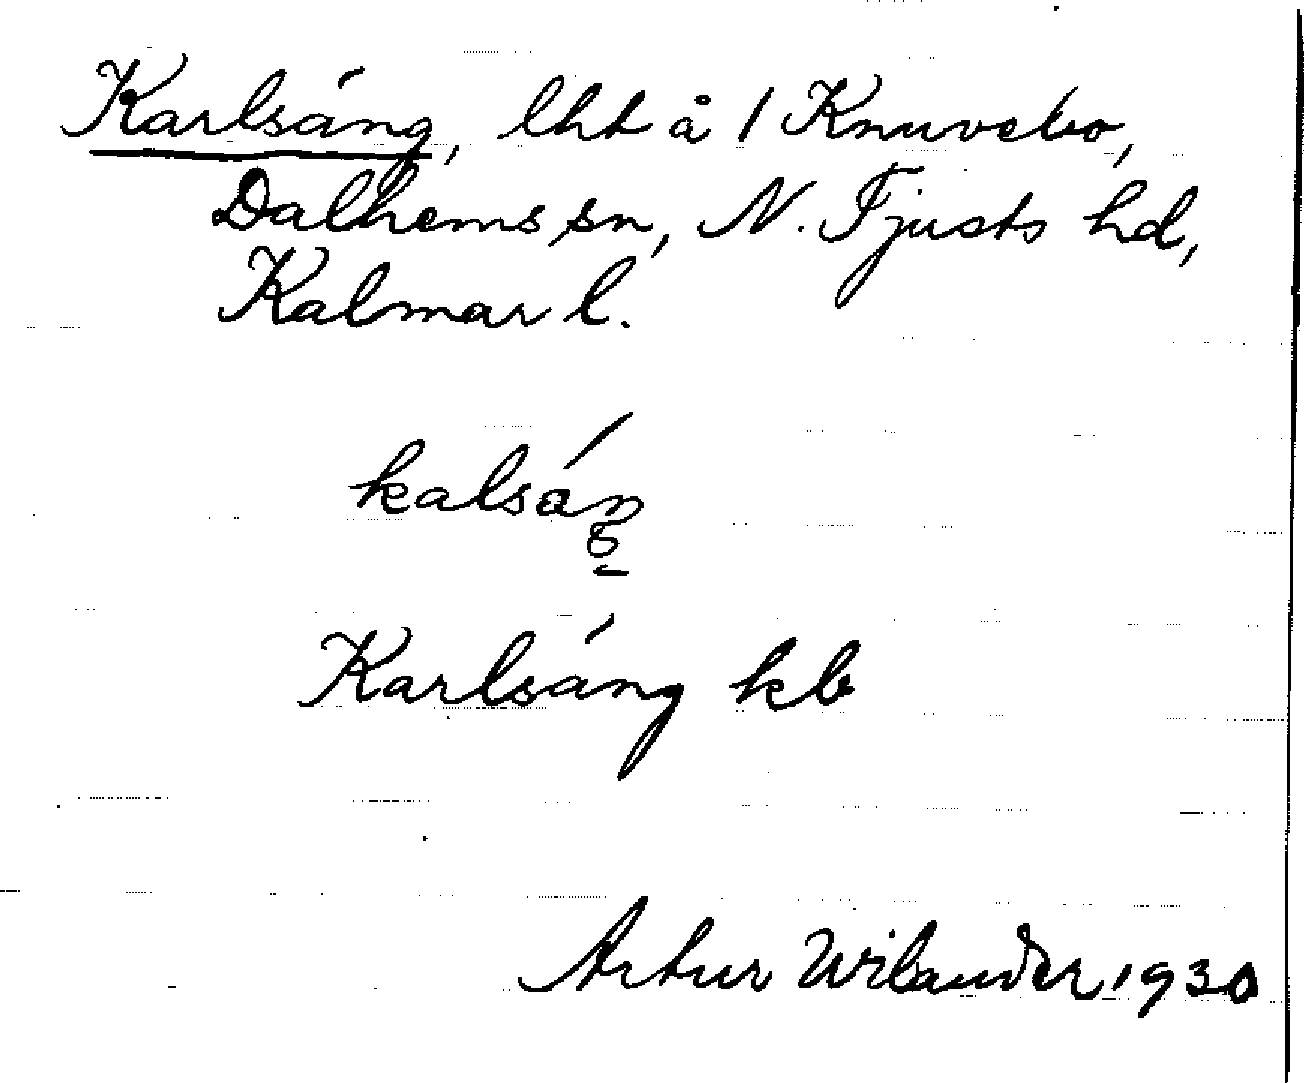 Karlsáng, lht å 1 Knuvebo,
Dalhems sn, N. Tjusts hd,
Kalmar l.
kalsáŋ
Karlsáng kb
Artur Wilander 1930